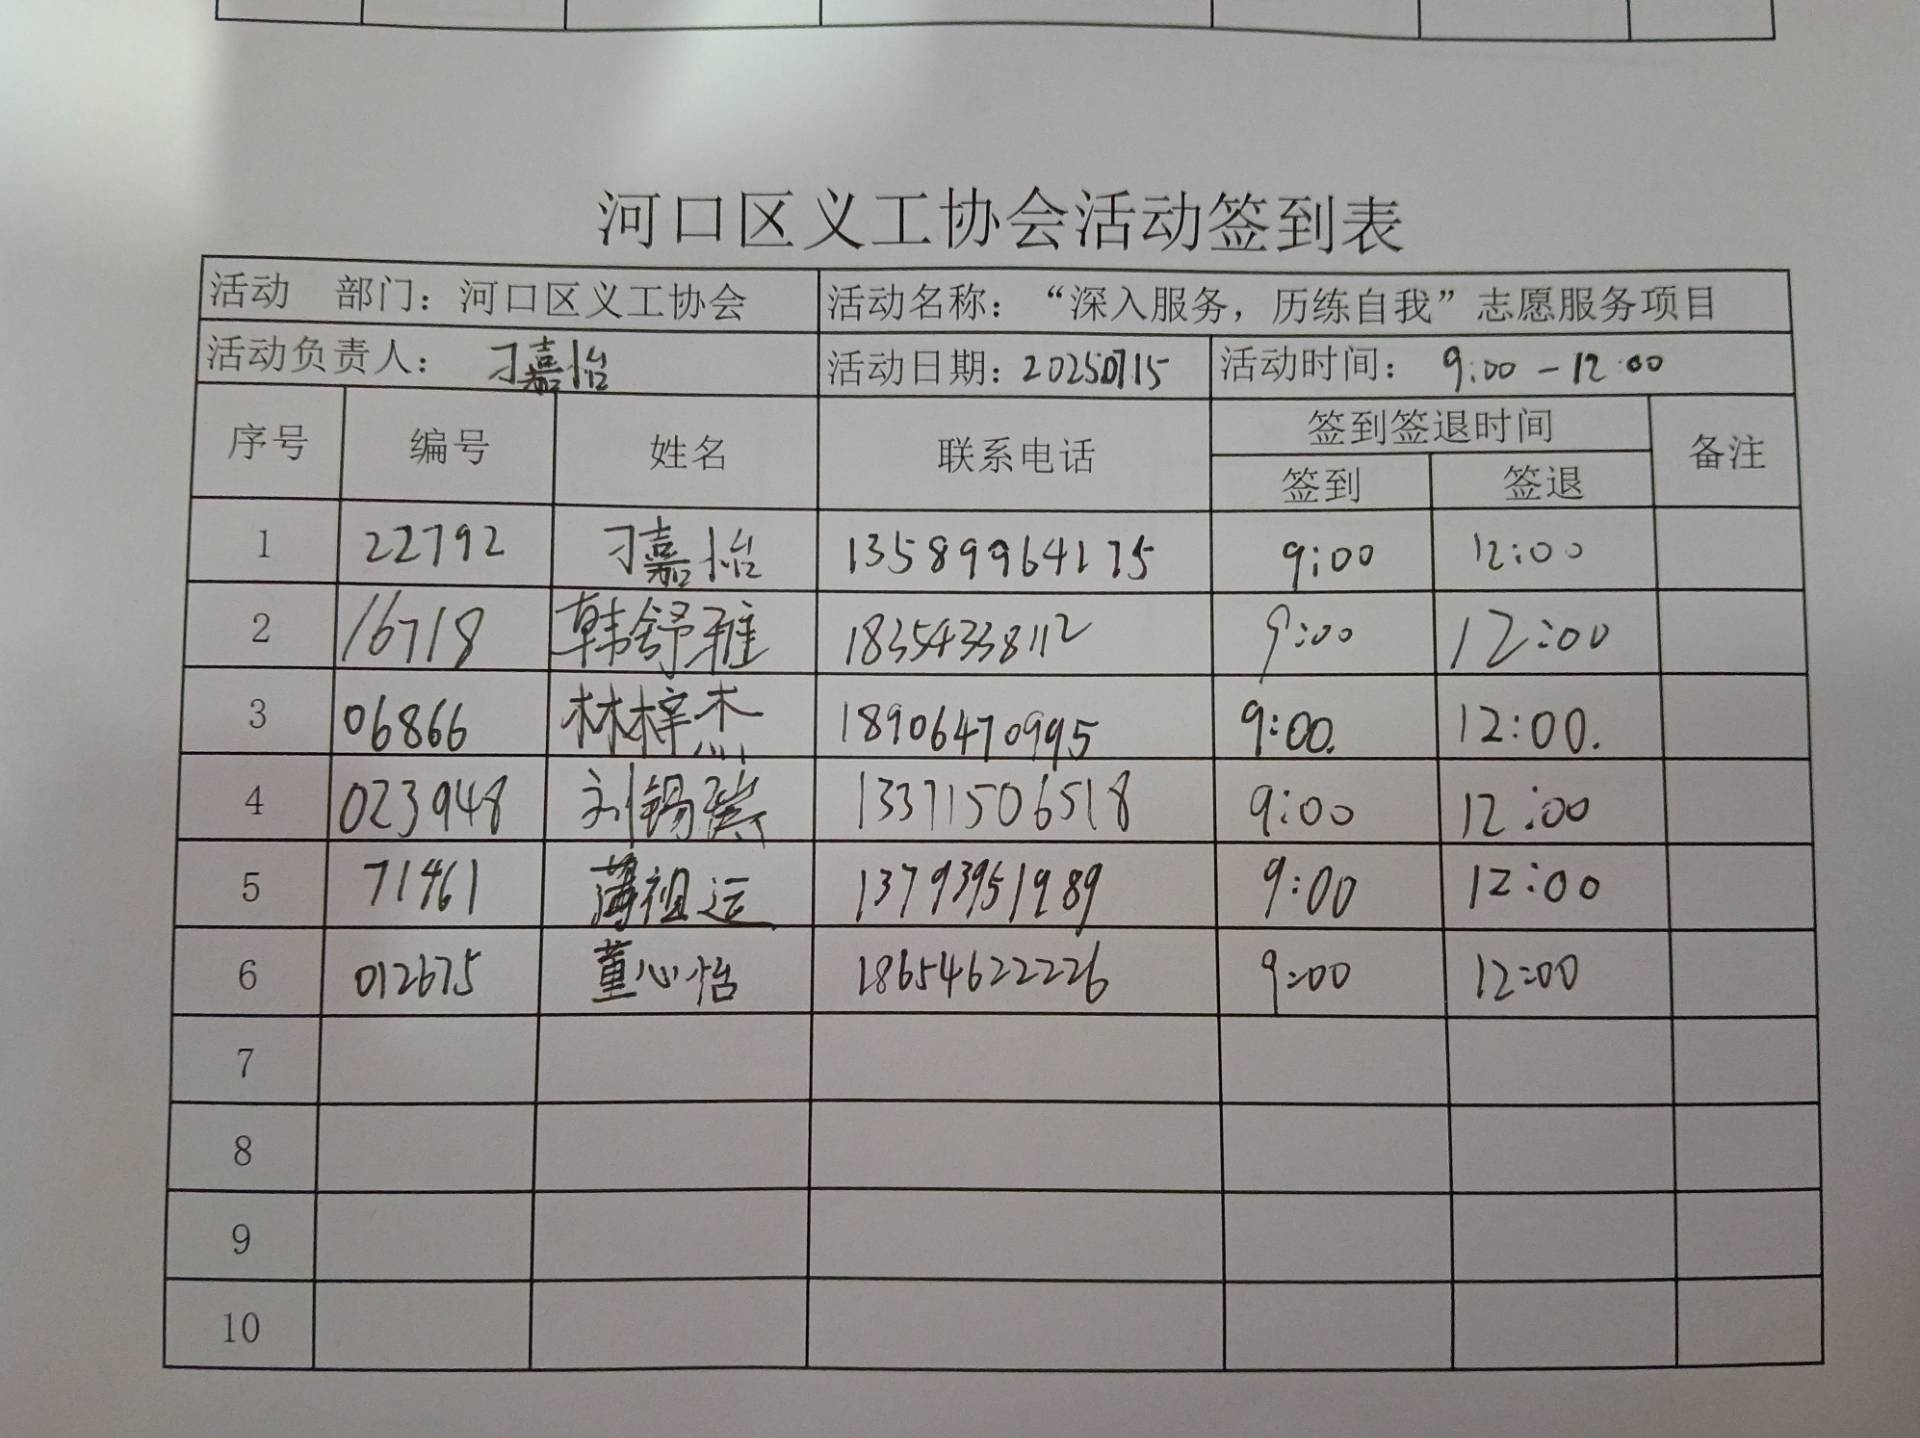 河口区义工协会活动签到表
活动 部门：河口区义工协会 活动名称：“深入服务，历练自我”志愿服务项目
活动负责人： 刁嘉怡 活动日期：20250715 活动时间： 9:00-12:00
序号 编号 姓名 联系电话 签到签退时间 备注
签到 签退
1 22792 刁嘉怡 13589964175 9:00 12:00
2 16718 韩舒雅 18354338112 9:00 12:00
3 06866 林梓杰 18906470995 9:00. 12:00.
4 023948 刘锡 13371506518 9:00 12:00
5 71461 薄祖运 13793951989 9:00 12:00
6 012675 董心怡 18654622226 9:00 12:00
7
8
9
10